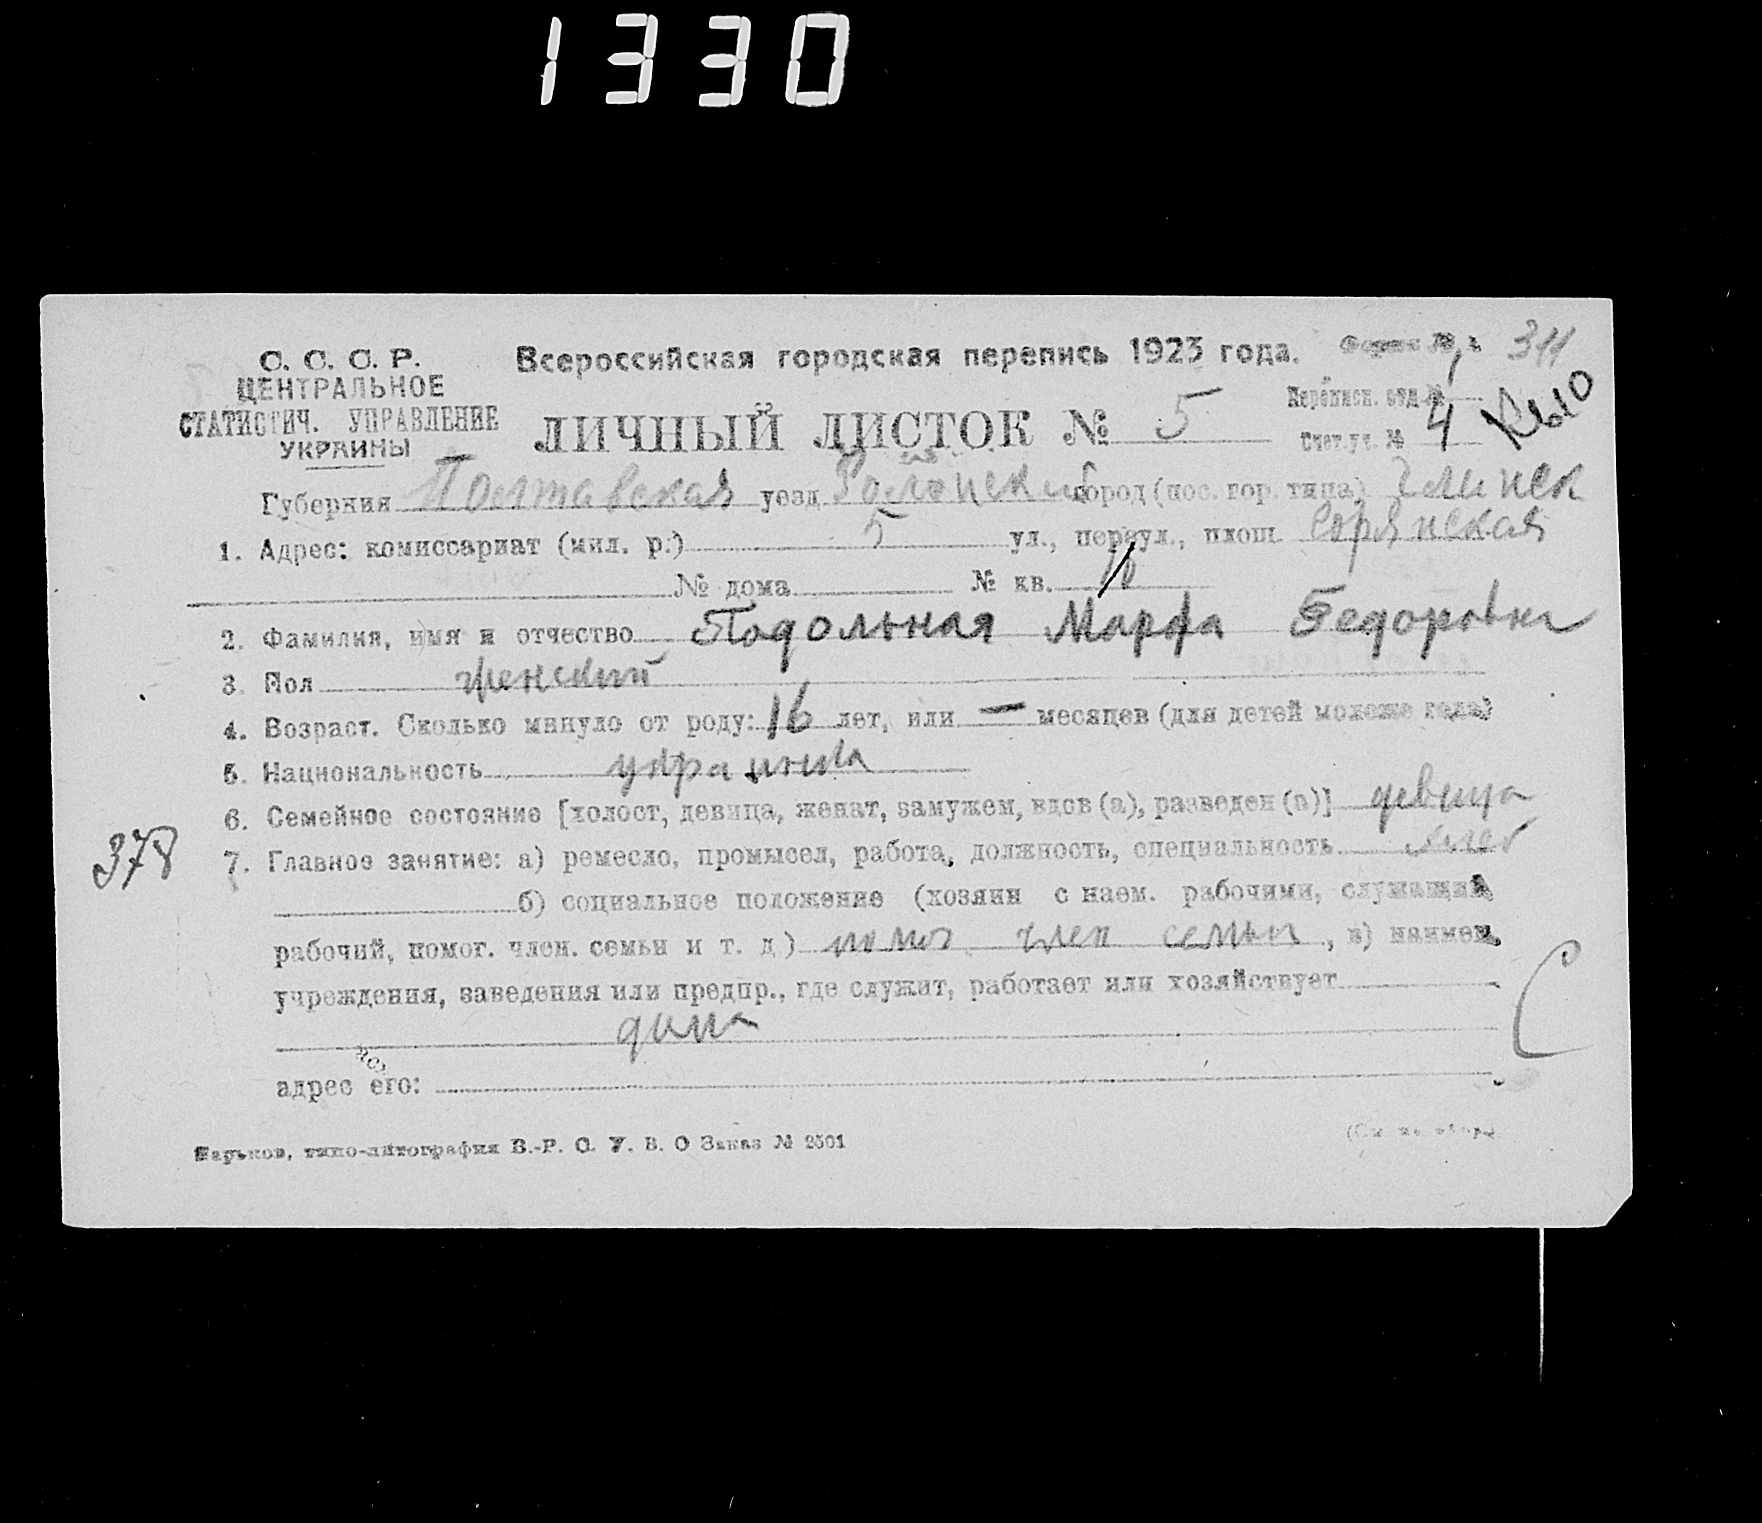 1330
С. С. С. Р.
ЦЕНТРАЛЬНОЕ
СТАТИСТИЧ. УПРАВЛЕНИЕ
УКРАИНЫ
Всероссийская городская перепись 1923 года.
Форма № 1. 311
ЛИЧНЫЙ ЛИСТОК № 5
Переписн. отд. №
Счет. уч. № 4
Губерния Полтавская уезд город (пос. гор. типа) Глинск
1. Адрес: комиссариат (мил. р.) 5 ул., переул., площ.
№ дома № кв. 10
2. Фамилия, имя и отчество Подольная Марфа Федоровна
3. Пол женский
4. Возраст. Сколько минуло от роду: 16 лет, или — месяцев (для детей моложе года)
5. Национальность украинка
6. Семейное состояние [холост, девица, женат, замужем, вдов (а), разведен (а)] девица
378
7. Главное занятие: а) ремесло, промысел, работа, должность, специальность
б) социальное положение (хозяин с наем. рабочими, служащий,
рабочий, помог. член. семьи и т. д.) помог член семьи, в) наимен.
учреждения, заведения или предпр., где служит, работает или хозяйствует
дома
адрес его:
Харьков, типо-литография В.-Р. С. У. В. О Заказ № 2501